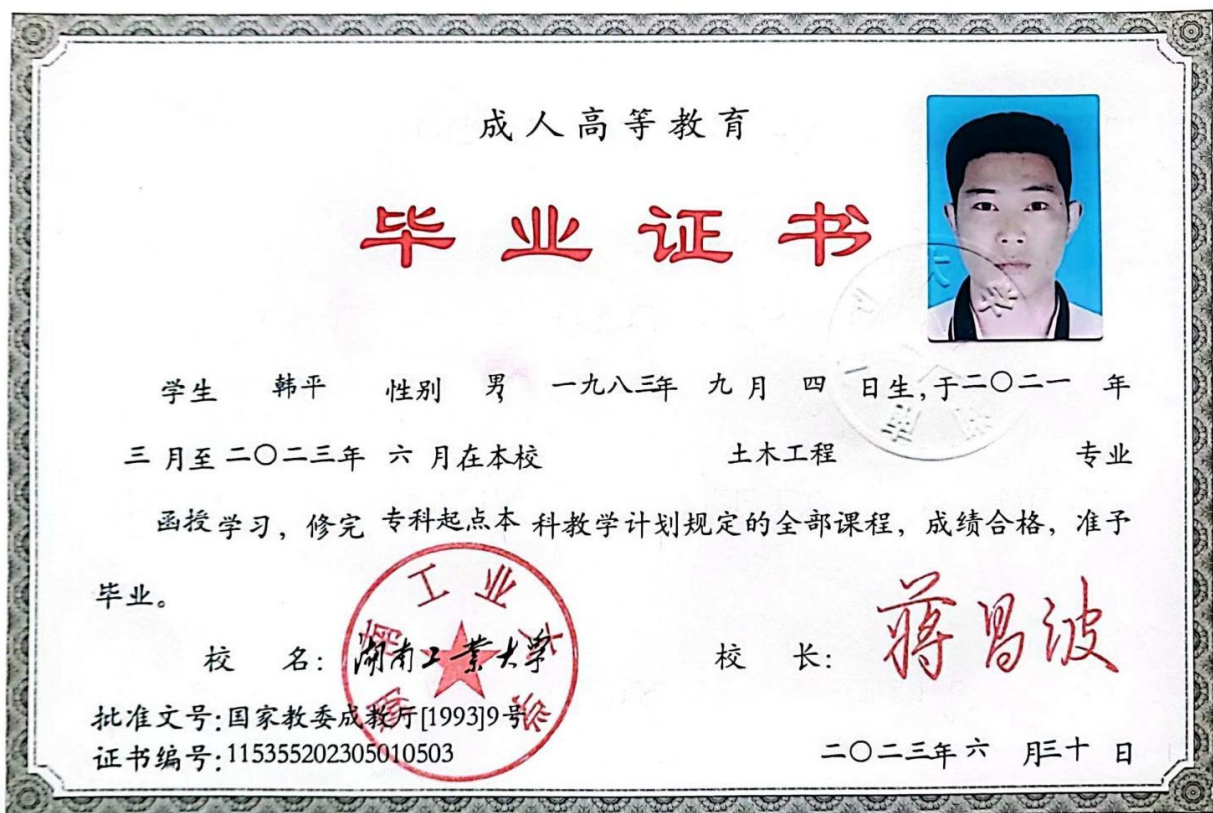 成人高等教育
毕业证书
学生 韩平 性别 男 一九八三年 九月 四 日生,于二〇二一 年
三 月至二〇二三年 六 月在本校 土木工程 专业
函授学习，修完 专科起点本 科教学计划规定的全部课程，成绩合格，准予
毕业。
校 名: 湖南工业大学 校 长: 蒋昌波
批准文号:国家教委成教厅[1993]9号
证书编号:115355202305010503 二〇二三年 六 月三十 日
湖南工业大学